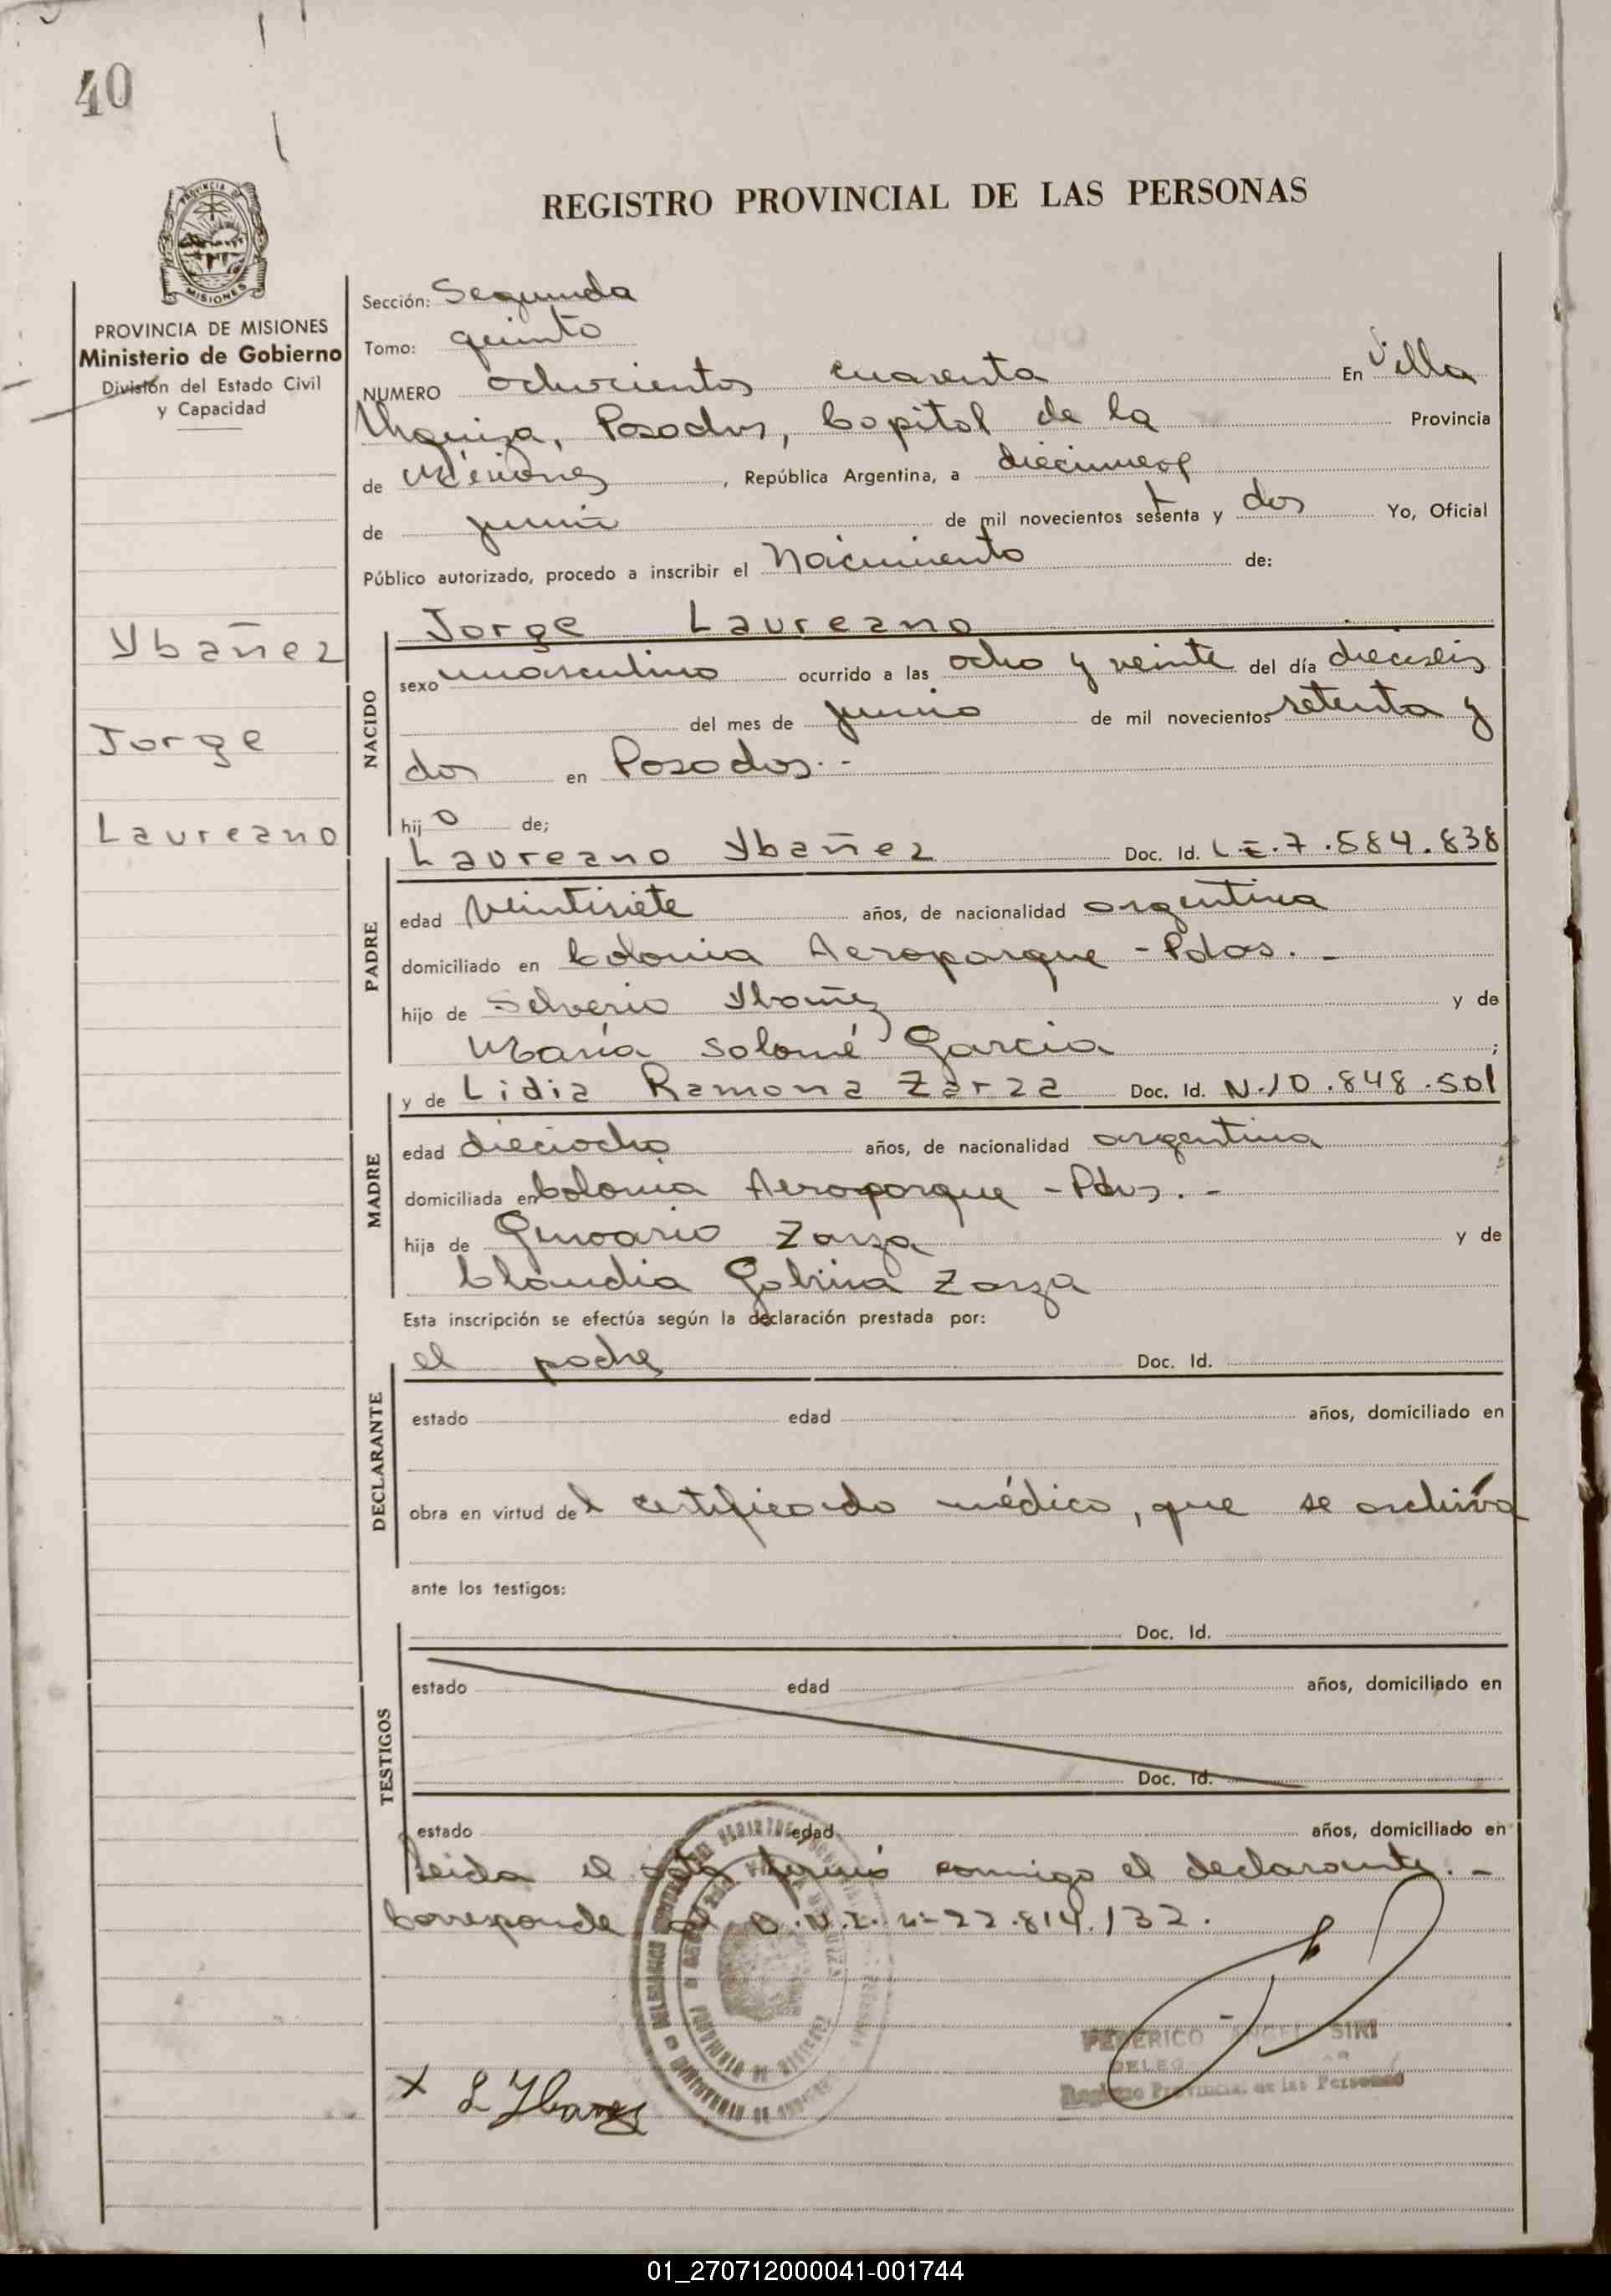 40
REGISTRO PROVINCIAL DE LAS PERSONAS
PROVINCIA DE
MISIONES
PROVINCIA DE MISIONES
Ministerio de Gobierno
División del Estado Civil
y Capacidad
Ybañez
Jorge
Laureano
Sección: Segunda
Tomo: quinto
NUMERO ochocientos cuarenta En Villa
Urquiza, Posadas, Capital de la Provincia
de Misiones, República Argentina, a diecinueve
de junio de mil novecientos setenta y dos Yo, Oficial
Público autorizado, procedo a inscribir el Nacimiento de:
NACIDO
Jorge Laureano
sexo masculino ocurrido a las ocho y veinte del día dieciseis
del mes de junio de mil novecientos setenta y
dos en Posadas.-
hijo de;
PADRE
Laureano Ybañez Doc. Id. L.E.7.584.838
edad veintisiete años, de nacionalidad argentina
domiciliado en Colonia Aeroparque - Pdas. -
hijo de Selverio Ybañez y de
María Salomé Garcia ;
MADRE
y de Lidia Ramona Zarza Doc. Id. N.10.848.501
edad dieciocho años, de nacionalidad argentina
domiciliada en Colonia Aeroparque - Pdas. -
hija de Zarza y de
Claudia Gabina Zarza
Esta inscripción se efectúa según la declaración prestada por:
DECLARANTE
el padre Doc. Id.
estado edad años, domiciliado en
obra en virtud del certificado médico, que se archiva
ante los testigos:
TESTIGOS
Doc. Id.
estado edad años, domiciliado en
Doc. Id.
estado edad años, domiciliado en
Leida el acta firmó conmigo el declarante. -
Corresponde al D.N.I. nº 22.814.132.
FEDERICO ANGEL SIRI
Registro Provincial de las Personas
x L Ybañez
01_270712000041-001744